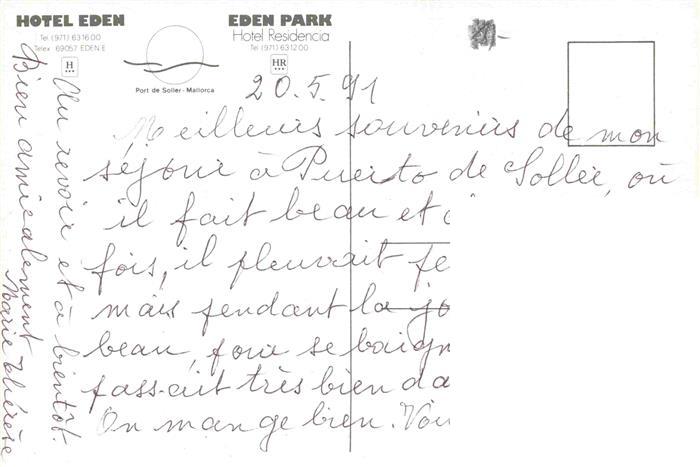 HOTEL EDEN
Tel. (971) 631600
Telex 69057 EDEN E
H
EDEN PARK
Hotel Residencia
Tel (971) 631200
HR
Port de Soller - Mallorca
20.5.91
Meilleurs souvenirs de mon
séjour à Puerto de Soller, où
il fait beau et
fois, il pleuvait
mais pendant la
beau, pour se
passait très bien
On mange bien.
Au revoir et à bientôt.
Bien amicalement
Marie Thérèse